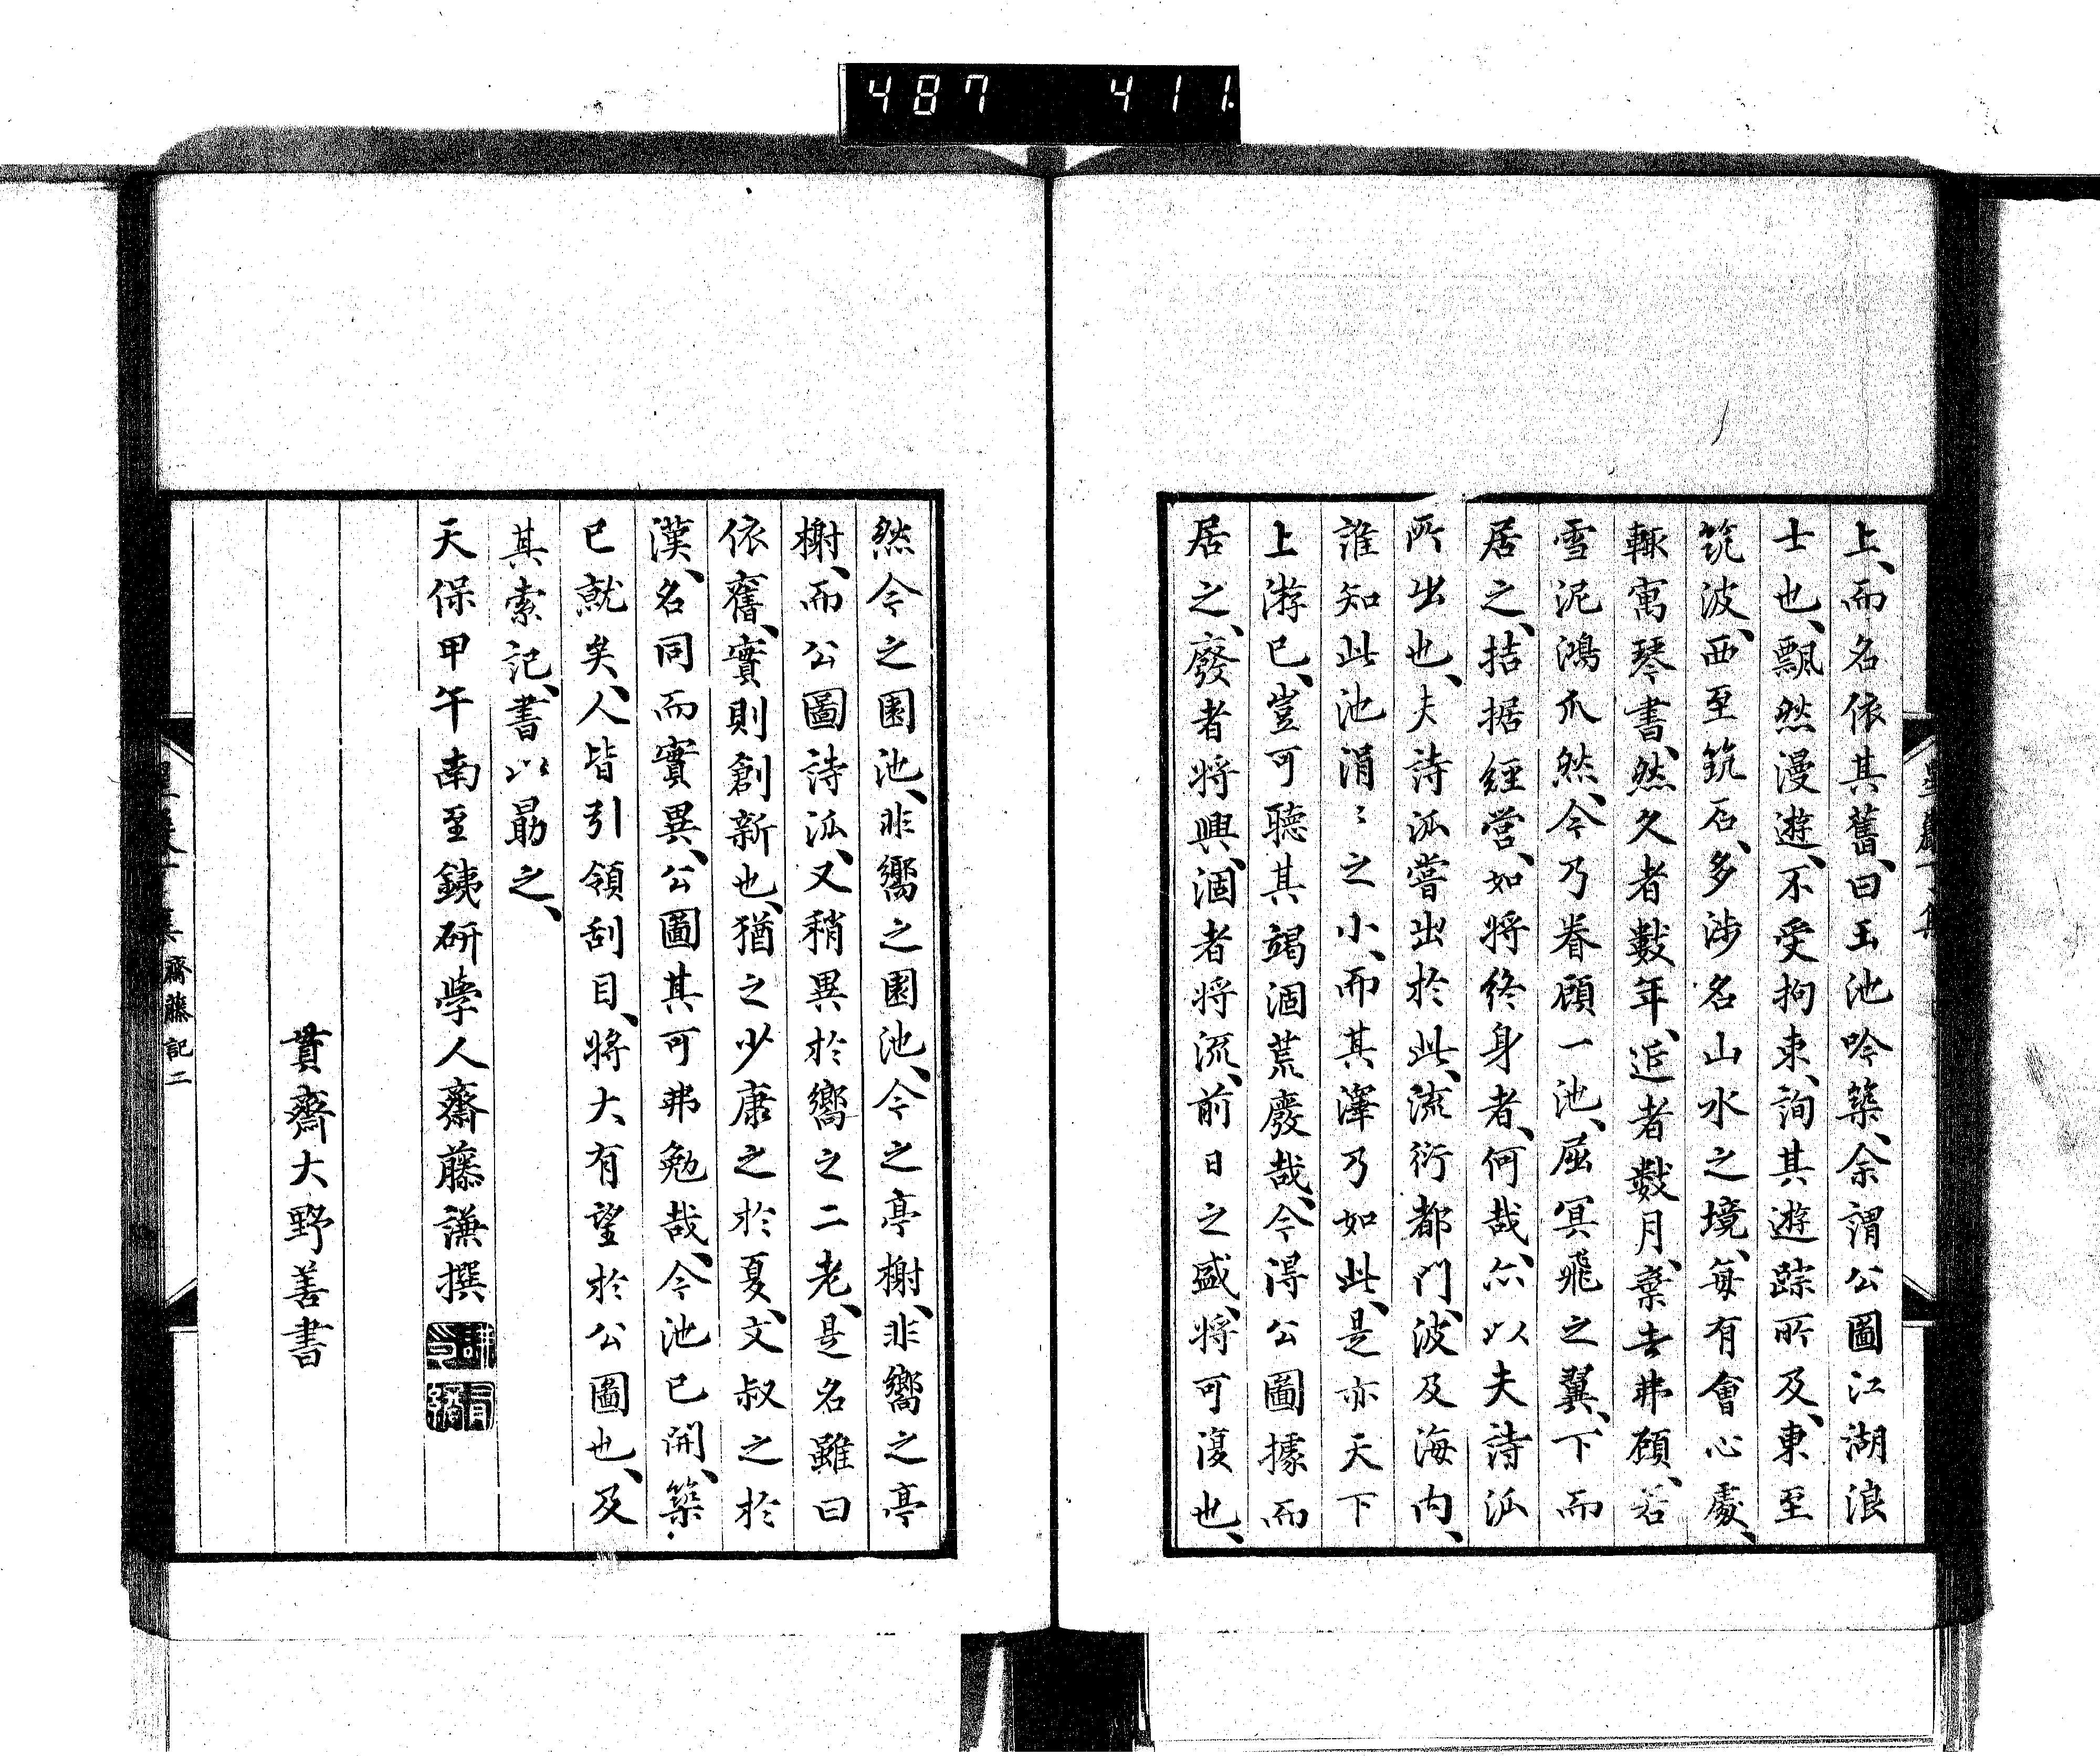 487 411
上、而名依其舊、曰玉池吟築、余謂公圖江湖浪
士也、飄然漫遊、不受拘束、詢其遊踪所及、東至
筑波、西至筑石、多涉名山水之境、每有會心處、
輙寓琴書、然久者數年、近者數月、棄去弗顧、若
雪泥鴻爪然、今乃眷顧一池、屈冥飛之翼、下而
居之、拮据經營、如將終身者、何哉、尒以夫詩泒
所出也、夫詩泒嘗出於此、流衍都門、波及海内、
誰知此池涓〻之小、而其澤乃如此、是亦天下
上游已、豈可聽其竭涸荒廢哉、今得公圖據而
居之、廢者將興、涸者將流、前日之盛、將可復也、
然今之園池、非嚮之園池、今之亭榭、非嚮之亭
榭、而公圖詩泒、又稍異於嚮之二老、是名雖曰
依舊、實則創新也、猶之少康之於夏、文叔之於
漢、名同而實異、公圖其可弗勉哉、今池已開、築
已就矣、人皆引領刮目、將大有望於公圖也、及
其索記、書以勗之、
天保甲午南至銕研學人齋藤謙撰
貫齋大野善書
齋藤記二